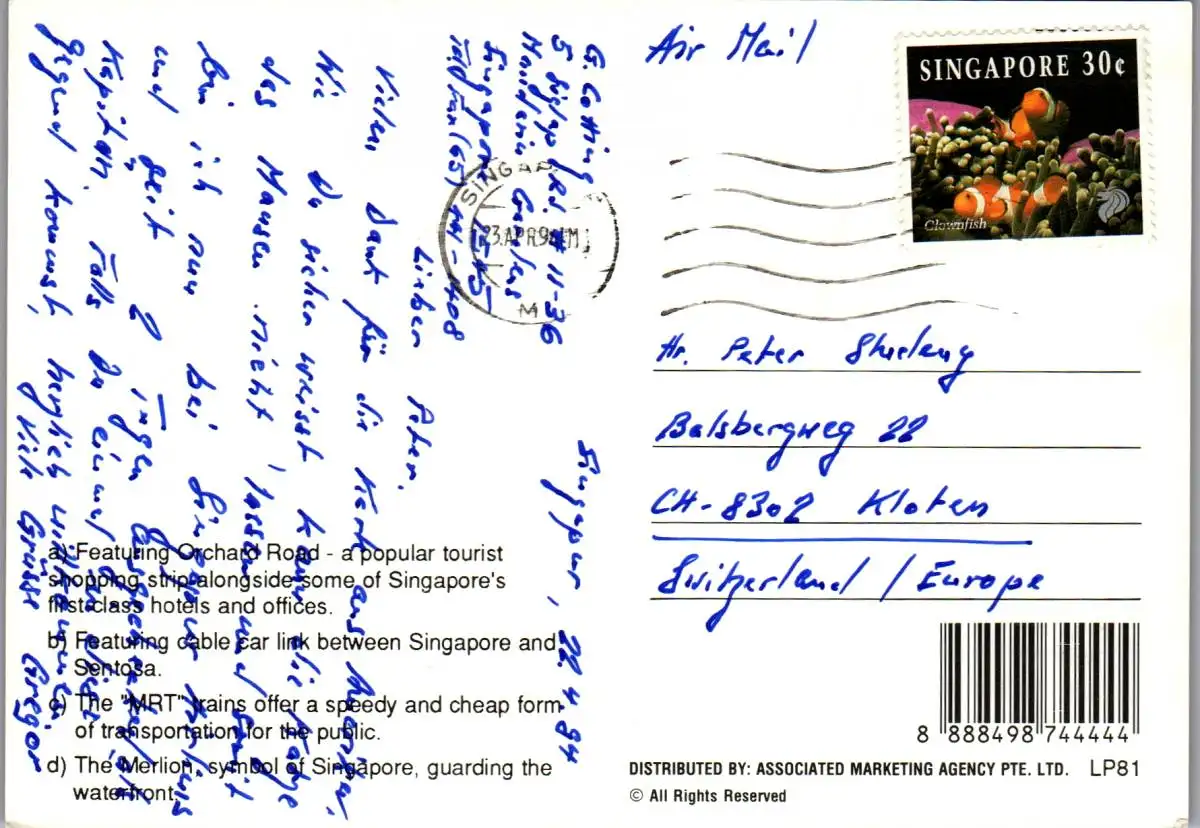 Air Mail
SINGAPORE 30¢
Clownfish
23.APR94
G. Cotting
5 Siglap Rd. # 11-36
Mandarin Gardens
Singapore 1545
Tel/Fax (65) 441-408
Singapur, 22.4.94
Lieber Peter.
Vielen Dank für die Karte aus
Wie Du sicher weisst kann die Katze
das Mausen nicht lassen und somit
bin ich nun bei Singapur Airlines
und seit 2 Tagen
Kapitän. Falls Du einmal in diese
Gegend kommst, herzlich willkommen
Viele Grüsse Gregor
Hr. Peter
Balsbergweg 22
CH-8302 Kloten
Switzerland / Europe
a) Featuring Orchard Road - a popular tourist
shopping strip alongside some of Singapore's
first class hotels and offices.
b) Featuring cable car link between Singapore and
Sentosa.
c) The "MRT" trains offer a speedy and cheap form
of transportation for the public.
d) The Merlion, symbol of Singapore, guarding the
waterfront.
8 888498 744444
DISTRIBUTED BY: ASSOCIATED MARKETING AGENCY PTE. LTD. LP81
© All Rights Reserved